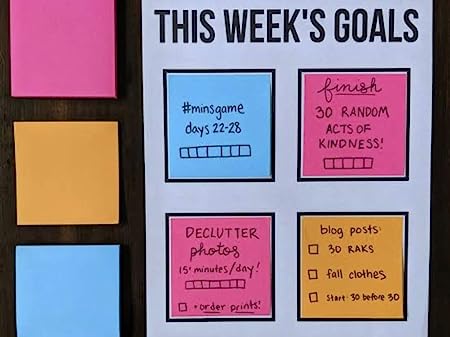 THIS WEEK'S GOALS
#minsgame
days 22-28
finish
30 RANDOM
ACTS OF
KINDNESS!
DECLUTTER
photos
15 minutes/day!
+order prints!
blog posts:
30 RAKS
fall clothes
start 30 before 30